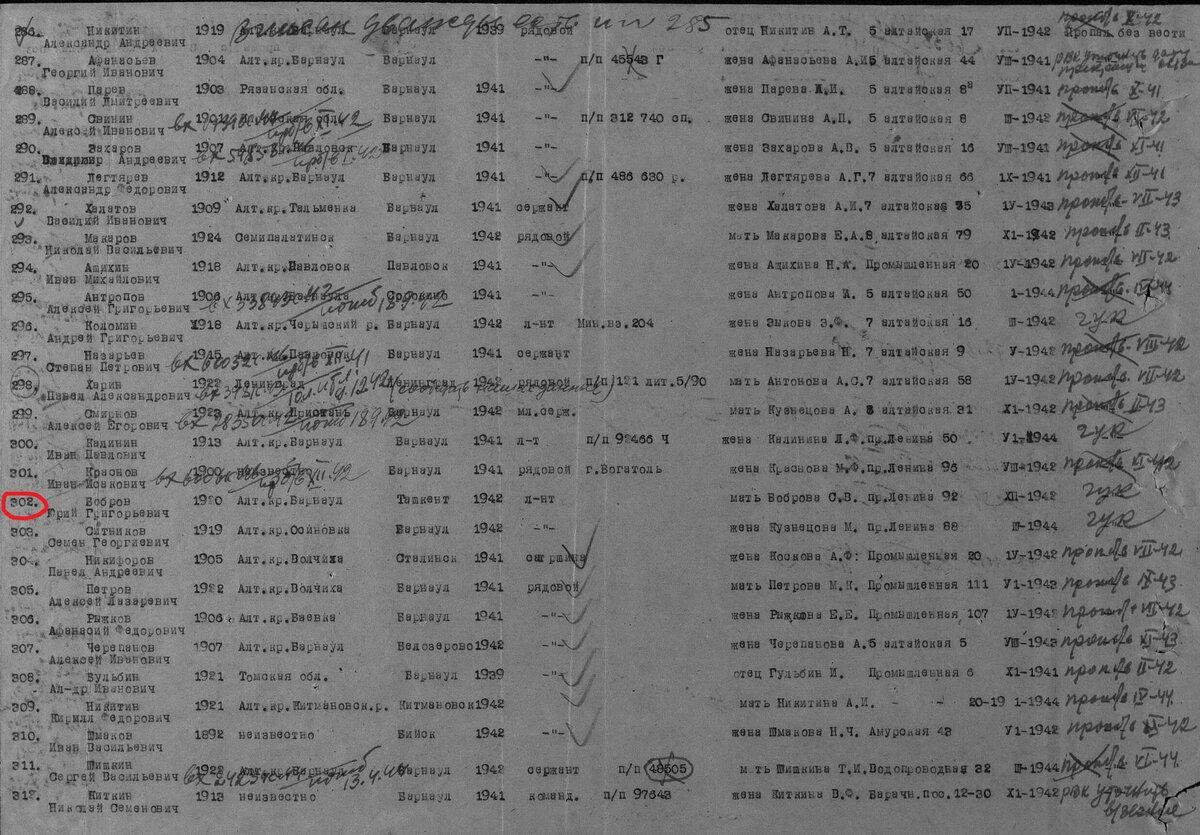 286. Никитин 1919 записан дважды есть и п 285 1939 рядовой отец Никитин А.Т. 5 алтайская 17 УП-1942 Пропал без вести
Александр Андреевич
287. Афанасьев 1904 Алт.кр.Барнаул Барнаул 1941 -"- п/п 45543 Г жена Афанасьева А.И 5 алтайская 44 УШ-1941
Георгий Иванович
288. Парев 1903 Рязанская обл. Барнаул 1941 -"- жена Парева И.И. 5 алтайская 8 УП-1941 проп б/в X-41
Василий Дмитреевич
289. Свинин 1901 Барнаул 1941 -"- п/п 312 740 сп. жена Свинина А.П. 5 алтайская 8 Ш-1942
Алексей Иванович
290. Захаров 1907 Алт.кр.Павловск Барнаул 1942 -"- жена Захарова А.В. 5 алтайская 16 УШ-1941 проп б/в XI-41
Владимир Андреевич
291. Дегтярев 1912 Алт.кр.Барнаул Барнаул 1941 -"- п/п 486 630 р. жена Дегтярева А.Г.7 алтайская 66 1Х-1941 проп б/в XII-41
Александр Федорович
292. Халатов 1909 Алт.кр.Тальменка Барнаул 1941 сержант жена Халатова А.И.7 алтайская 35 1У-1943 проп б/в VII-43
Василий Иванович
293. Макаров 1924 Семипалатинск Барнаул 1942 рядовой мать Макарова Е.А.8 алтайская 79 Х1-1942 проп б/в II-43
Николай Васильевич
294. Ащихин 1918 Алт.кр.Павловск Павловск 1941 -"- жена Ащихина Н.А. Промышленная 20 1У-1942 проп б/в VII-42
Иван Михайлович
295. Антропов 1906 Сорокино 1941 -"- жена Антропова А. 5 алтайская 50 1-1944 проп б/в IV-44
Алексей Григорьевич погиб 18.9.42
296. Коломин 1918 Алт.кр.Черышский р. Барнаул 1942 л-нт Мин.вз.204 жена Зыкова З.Ф. 7 алтайская 16 Ш-1942 ГУК
Андрей Григорьевич
297. Назарьев 1915 Барнаул 1941 сержант жена Назарьева Н. 7 алтайская 9 У-1942 проп б/в VIII-42
Степан Петрович
298. Харин 1922 Ленинград Ленинград 1942 рядовой п/п 121 лит.5/90 мать Антонова А.С.7 алтайская 58 1У-1942 проп б/в VII-42
Павел Александрович
299. Смирнов 1923 Алт.кр.Пристань Барнаул 1942 мл.серж. мать Кузнецова А. 8 алтайская 31 Х1-1942 проп б/в II-43
Алексей Егорович погиб 18.9.42
300. Калинин 1913 Алт.кр.Барнаул Барнаул 1941 л-т п/п 92466 Ч жена Калинина Л.Ф.пр.Ленина 50 У1-1944 ГУК
Иван Павлович
301. Краснов 1900 неизвестно Барнаул 1941 рядовой г.Боготоль жена Краснова М.Ф.пр.Ленина 96 УШ-1942
Иван Исакович
302. Бобров 1920 Алт.кр.Барнаул Ташкент 1942 л-нт мать Боброва С.В. пр.Ленина 92 ХП-1942 ГУК
Юрий Григорьевич
303. Ситников 1919 Алт.кр.Осиновка Барнаул 1942 -"- жена Кузнецова М. пр.Ленина 88 Ш-1944 ГУК
Семен Георгиевич
304. Никифоров 1905 Алт.кр.Волчиха Сталинск 1941 старшина жена Коскова А.Ф. Промышленная 20 1У-1942 проп б/в VII-42
Павел Андреевич
305. Петров 1922 Алт.кр.Волчиха Барнаул 1942 рядовой мать Петрова М.К. Промышленная 111 У1-1943 проп б/в IX-43
Алексей Лазаревич
306. Рыжков 1906 Алт.кр.Баевка Барнаул 1942 -"- жена Рыжкова Е.Е. Промышленная 107 1У-1942 проп б/в VII-42
Афанасий Федорович
307. Черепанов 1907 Алт.кр.Барнаул Белозерово 1942 -"- жена Черепанова А.5 алтайская 5 УШ-1943 проп б/в XI-43
Алексей Иванович
308. Бульбин 1921 Томская обл. Барнаул 1939 -"- отец Гульбин И. Промышленная 6 Х1-1941 проп б/в II-42
Ал-др Иванович
309. Никитин 1921 Алт.кр.Китмановск.р. Китмановск 1942 -"- мать Никитина А.И. - - 20-19 1-1944 проп б/в IV-44
Кирилл Федорович
310. Шмаков 1892 неизвестно Бийск 1942 -"- жена Шмакова Н.Ч. Амурская 43 У1-1942
Иван Васильевич
311. Шишкин 1922 Алт.кр.Барнаул Барнаул 1942 сержант п/п 48505 мать Шишкина Т.И.Водопроводная 32 Ш-1944 проп б/в VI-44
Сергей Васильевич погиб 13.4.44
312. Киткин 1913 неизвестно Барнаул 1941 команд. п/п 97643 жена Житкина В.Ф. Барачн.пос.12-30 Х1-1942 РВК уточнить
Николай Семенович в/звание